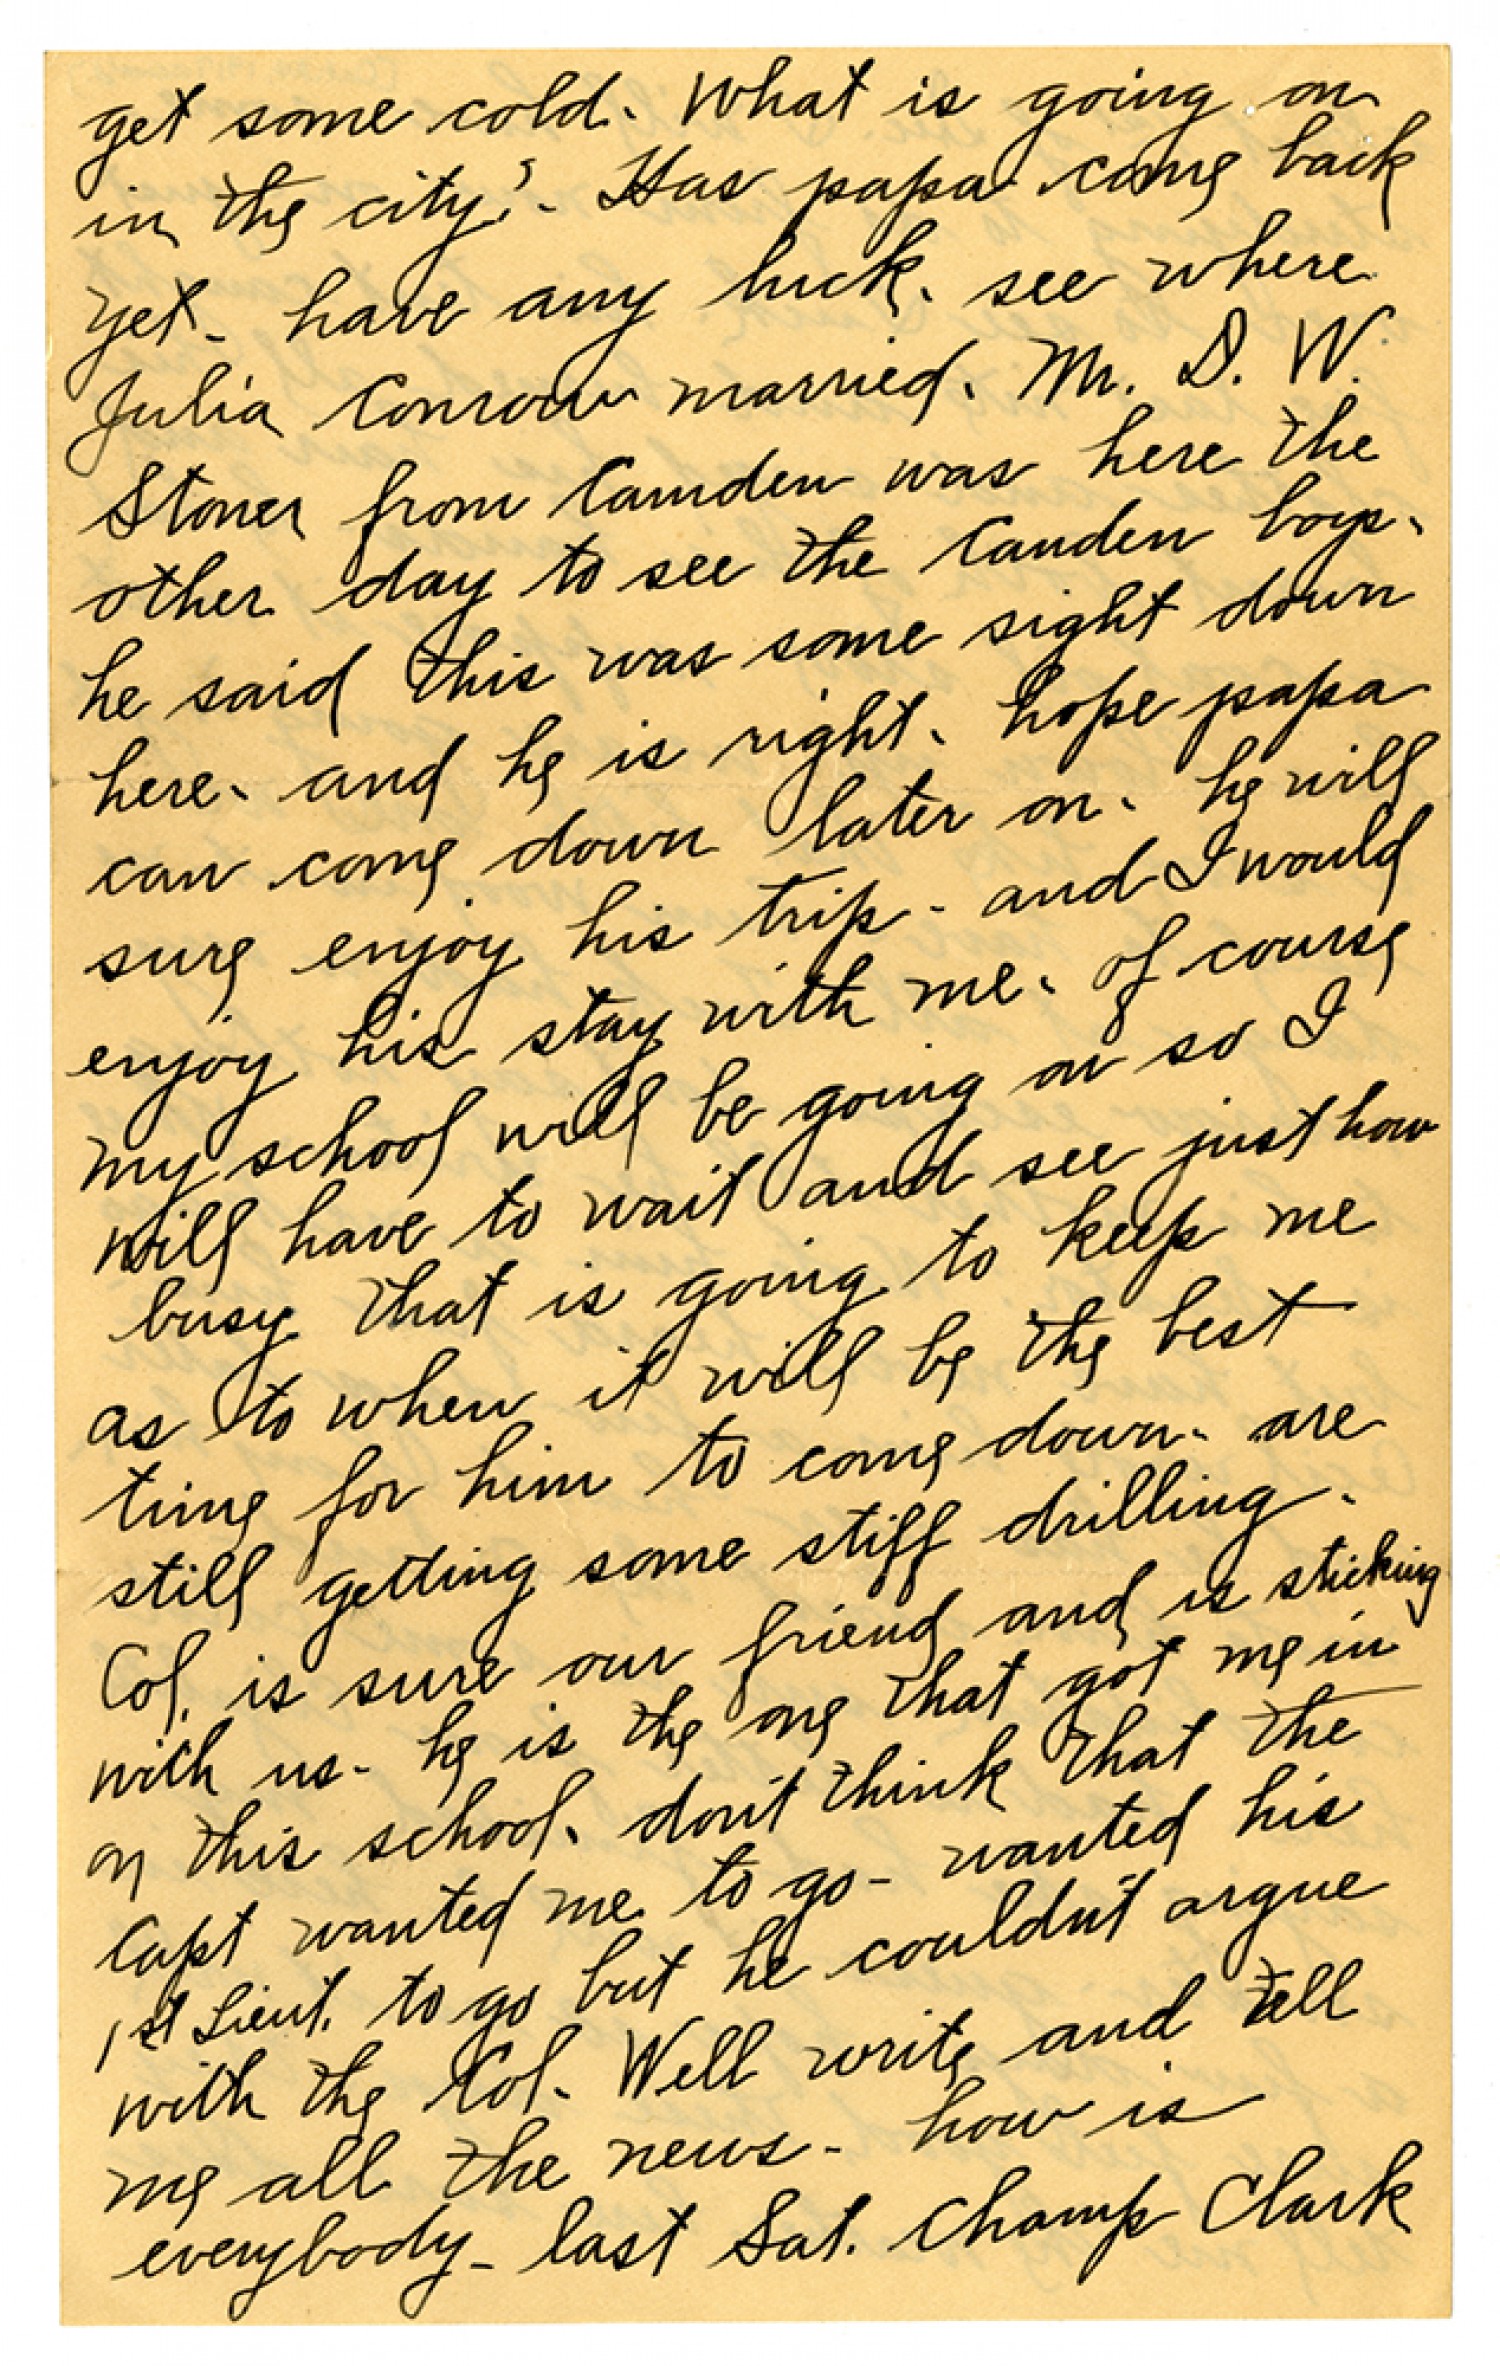 get some cold. What is going on
in the city?. Has papa come back
yet - have any luck. see where
Julia Conrow married. Mr. D. W.
Stoner from Camden was here the
other day to see the Camden boys.
he said this was some sight down
here. and he is right. hope papa
can come down later on. he will
sure enjoy his trip - and I would
enjoy his stay with me. of course
my school will be going on so I
will have to wait and see just how
busy that is going to keep me
as to when it will be the best
time for him to come down. are
still getting some stiff drilling.
Col. is sure our friend and is sticking
with us - he is the one that got me in
on this school. don't think that the
Capt wanted me to go - wanted his
1st Lieut. to go but he couldn't argue
with the Col. Well write and tell
me all the news - how is
everybody - last Sat. Champ Clark